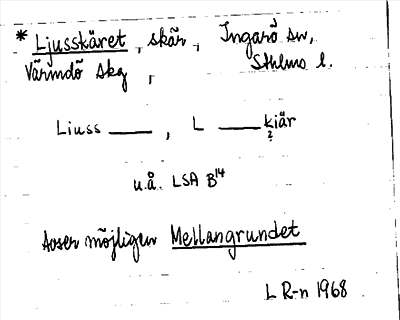 * Ljusskäret, skär, Ingarö sn,
Värmdö skg, Sthlms l.
Liuss ____, L ____ kiär
?
u.å. LSA B14
Avser möjligen Mellangrundet
L R-n 1968